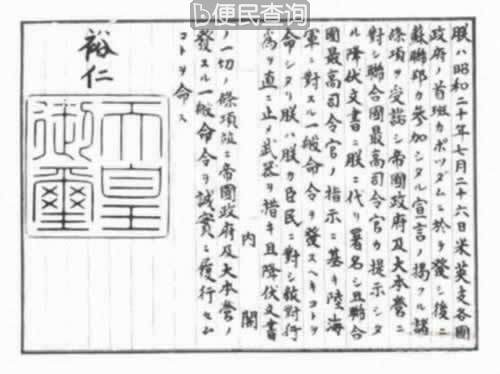 便民查询
朕ハ昭和二十年七月二十六日米英支各國
政府ノ首班カポツダムニ於テ發シ後ニ
蘇聯邦カ參加シタル宣言ノ掲クル諸
條項ヲ受諾シ帝國政府及大本營ニ
對シ聯合國最高司令官カ提示シタ
ル降伏文書ニ朕ニ代リ署名シ且聯合
國最高司令官ノ指示ニ基キ陸海
軍ニ對スル一般命令ヲ發スヘキコトヲ
命シタリ朕ハ朕カ臣民ニ對シ敵對行
爲ヲ直ニ止メ武器ヲ措キ且降伏文書
内閣
ノ一切ノ條項竝ニ帝國政府及大本營ノ
發スル一般命令ヲ誠實ニ履行セム
コトヲ命ス
裕仁
天皇
御璽